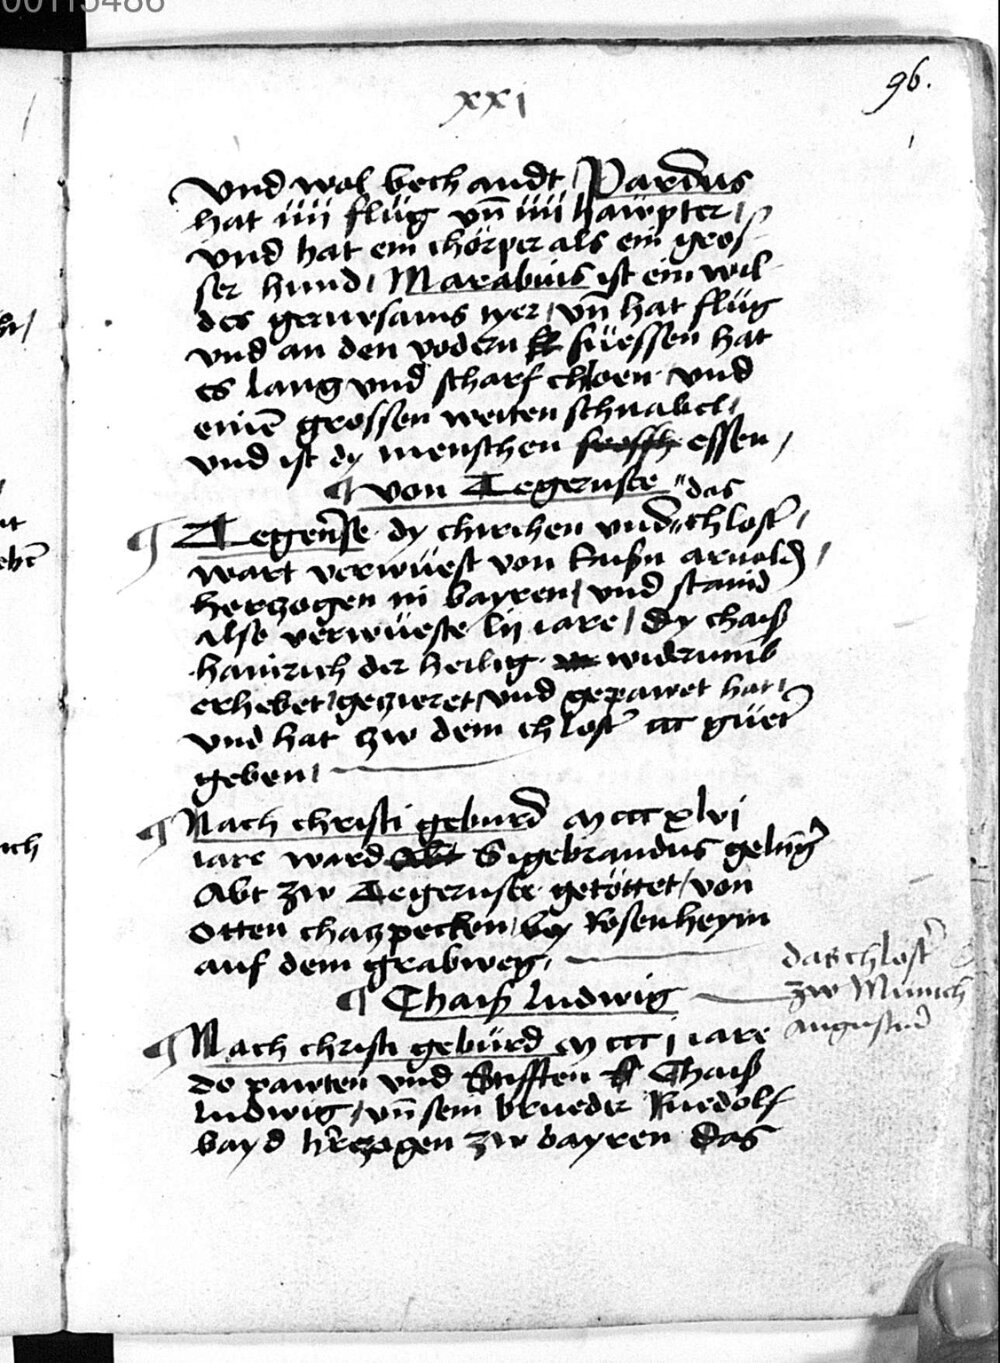 00115486
96.
xxi
vnd wol bechandt / Pardus
hat iiii flüg vn̄ iiii hawpter /
vnd hat ein chörper als ein gros-
ser hund / Marabnus ist ein wil-
des grewsams tyer / vn̄ hat flüg
vnd an den vodern füessen hat
es lang vnd scharf chloen vnd
eine̅ grossen weiten schnabel /
vnd ist dy menschen essen /
¶ von Tegernsee "das
¶ Tegern̄se dy chirchen vnd "chlost̄ /
wart verwüest von arnold /
herczogen in bayren / vnd stand
also verwüeste lij iare / Dy chais̄
hainrich der heilig widerumb
erhebet / gezieret / vnd gepawet hat /
vnd hat zw dem chlost̄ ccc güet̄
geben /
¶ Nach christi geburd M ccc xlvi
iare ward Sigebrandus
Abt zw Tegernsee getöttet / von
Otten chaczpecken / bey Rosenheym
auf dem grabweg /
das chlost̄
zw Munich
Augustin̄
¶ Chais̄ ludwig
¶ Nach christi gebürd M ccc j iare
do pawten vnd Stifften Chais̄
ludwig / vn̄ sein brueder Ruedolf
bayd herczogen zw bayren Das